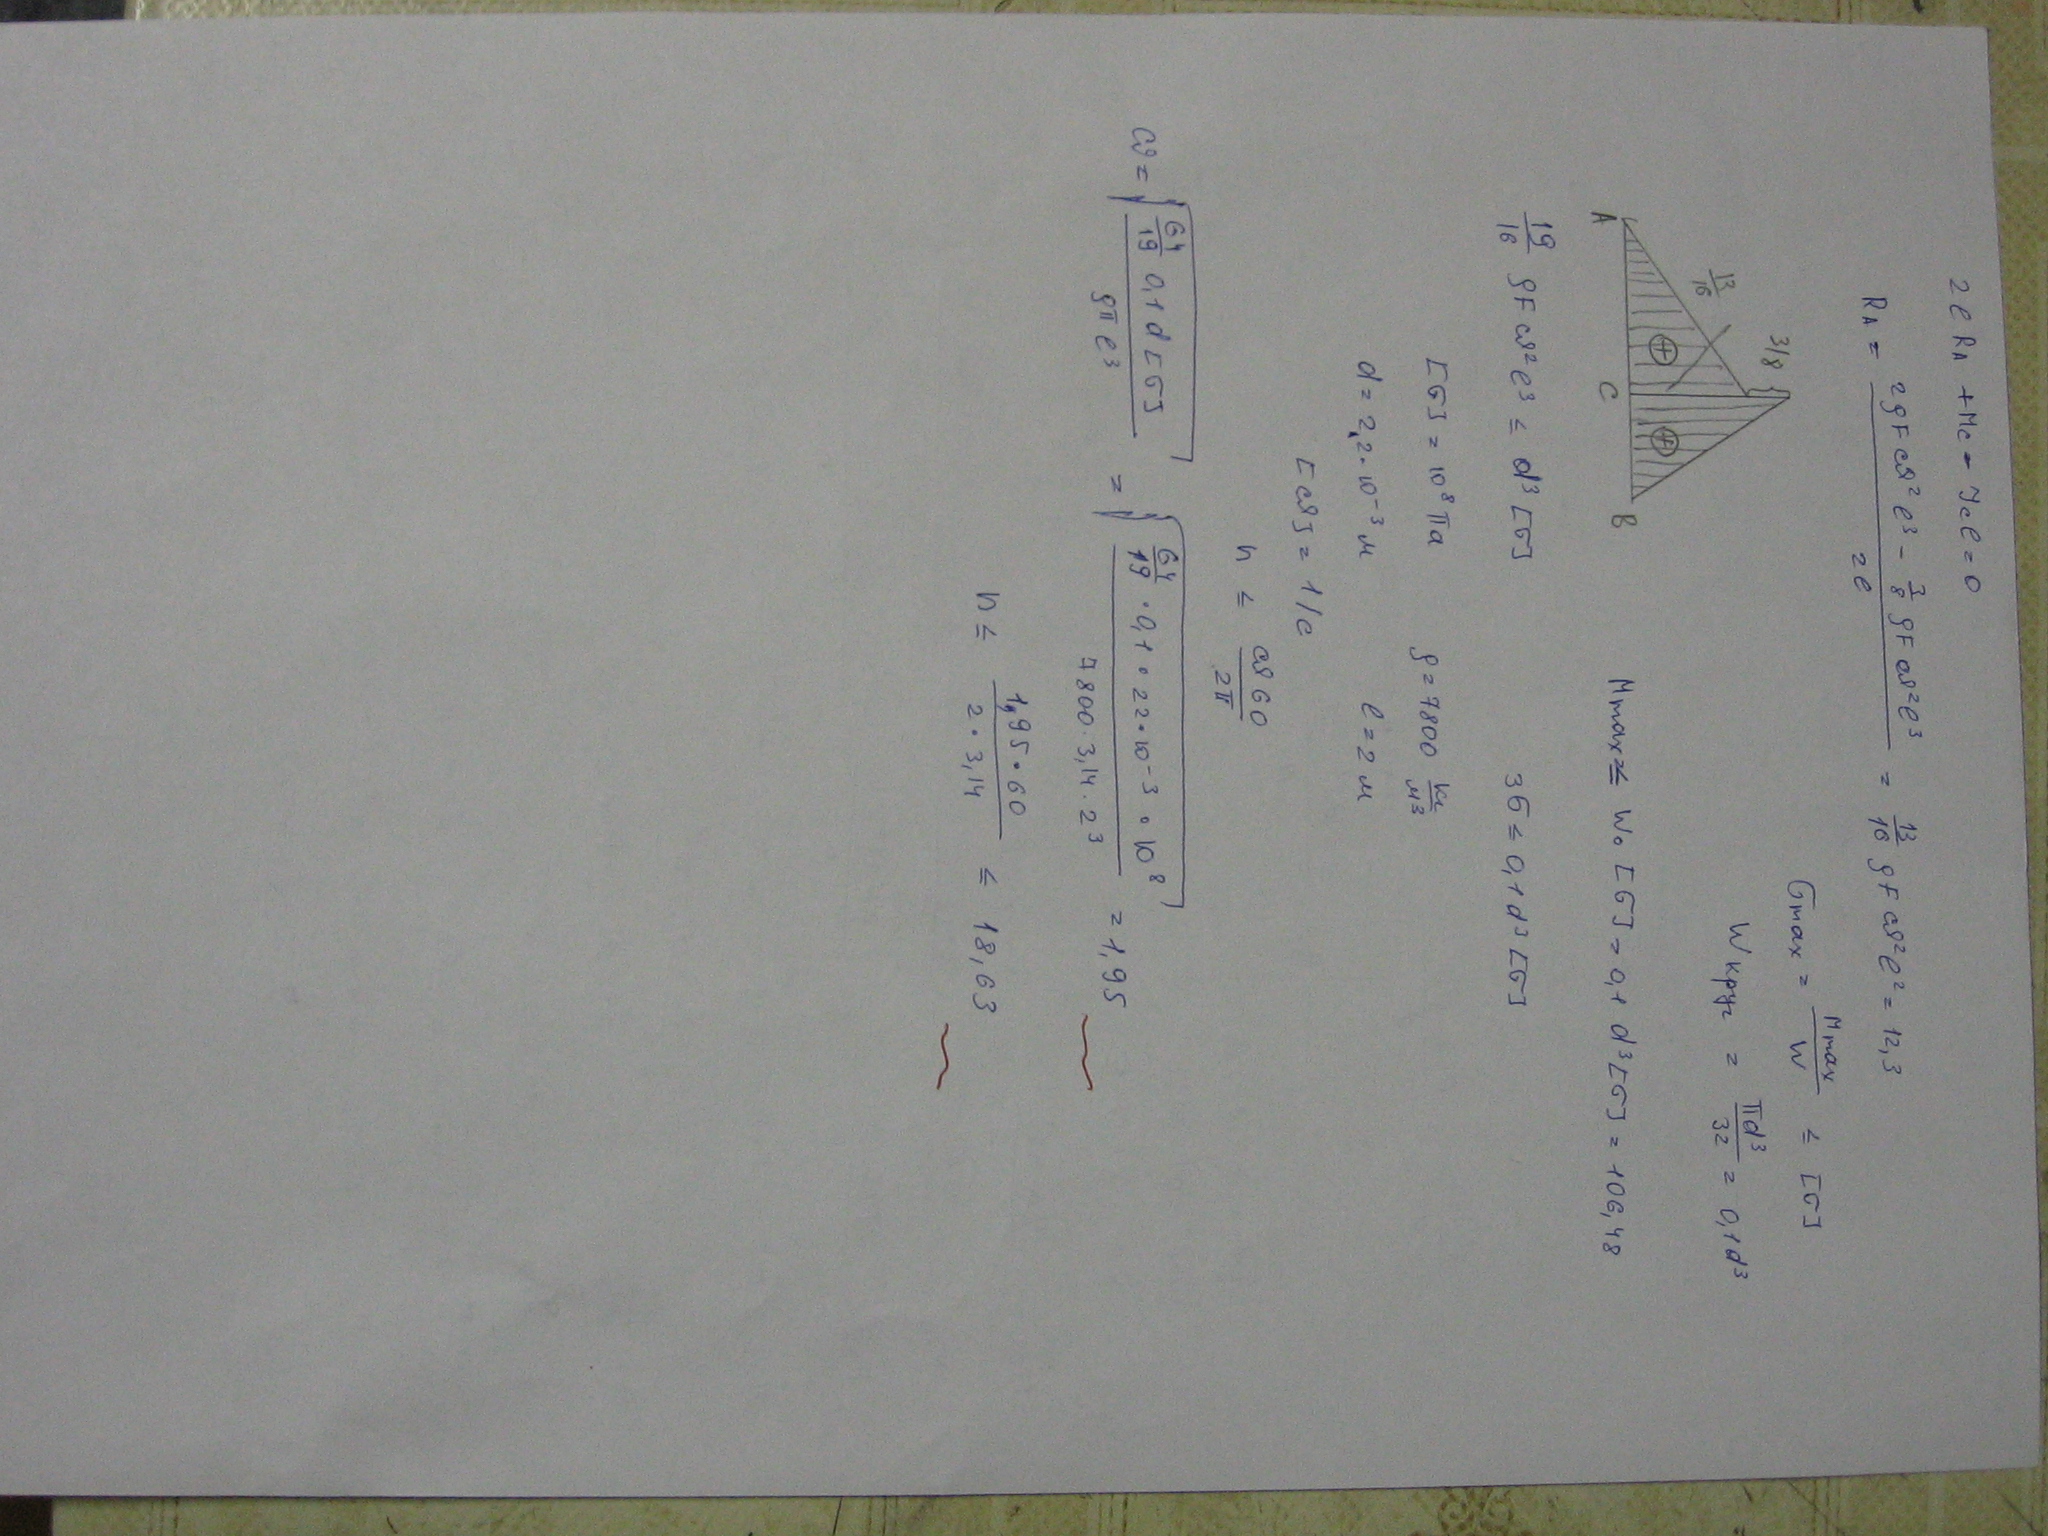 2ℓ R_A + M_C - J_C ℓ = 0
R_A = (2ρFω²ℓ³ - 3/8 ρFω²ℓ³) / 2ℓ = 13/16 ρFω²ℓ² = 12,3
σmax = Mmax / W ≤ [σ]
3/8
13/16
Wкруг = πd³ / 32 = 0,1d³
A C B
Mmax ≤ W₀ [σ] = 0,1 d³[σ] = 106,48
19/16 ρFω²ℓ³ ≤ d³[σ] 36 ≤ 0,1d³[σ]
[σ] = 10⁸ Па ρ = 7800 кг/м³
d = 2,2·10⁻³ м ℓ = 2 м
[ω] = 1/с
n ≤ ω60 / 2π
ω = √(64/19 0,1d[σ] / ρπℓ³) = √(64/19 · 0,1 · 22·10⁻³ · 10⁸ / 7800·3,14·2³) = 1,95
n ≤ 1,95·60 / 2·3,14 ≤ 18,63